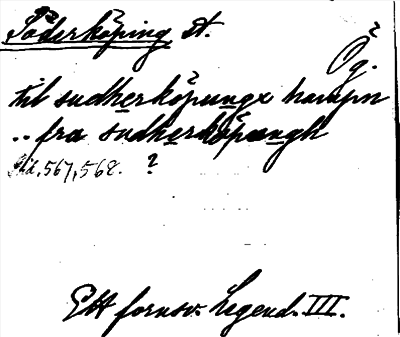 Söderköping st.
Ög.
til sudherköpungx hampn
.. fra sudherköpungh
Sid. 567, 568. ?
Ett fornsv. Legend. III.